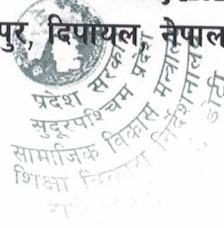 पुर, दिपायल, नेपाल
प्रदेश सरकार
सुदूरपश्चिम प्रदेश
सामाजिक विकास मन्त्रालय
शिक्षा विकास निर्देशनालय
डोटी